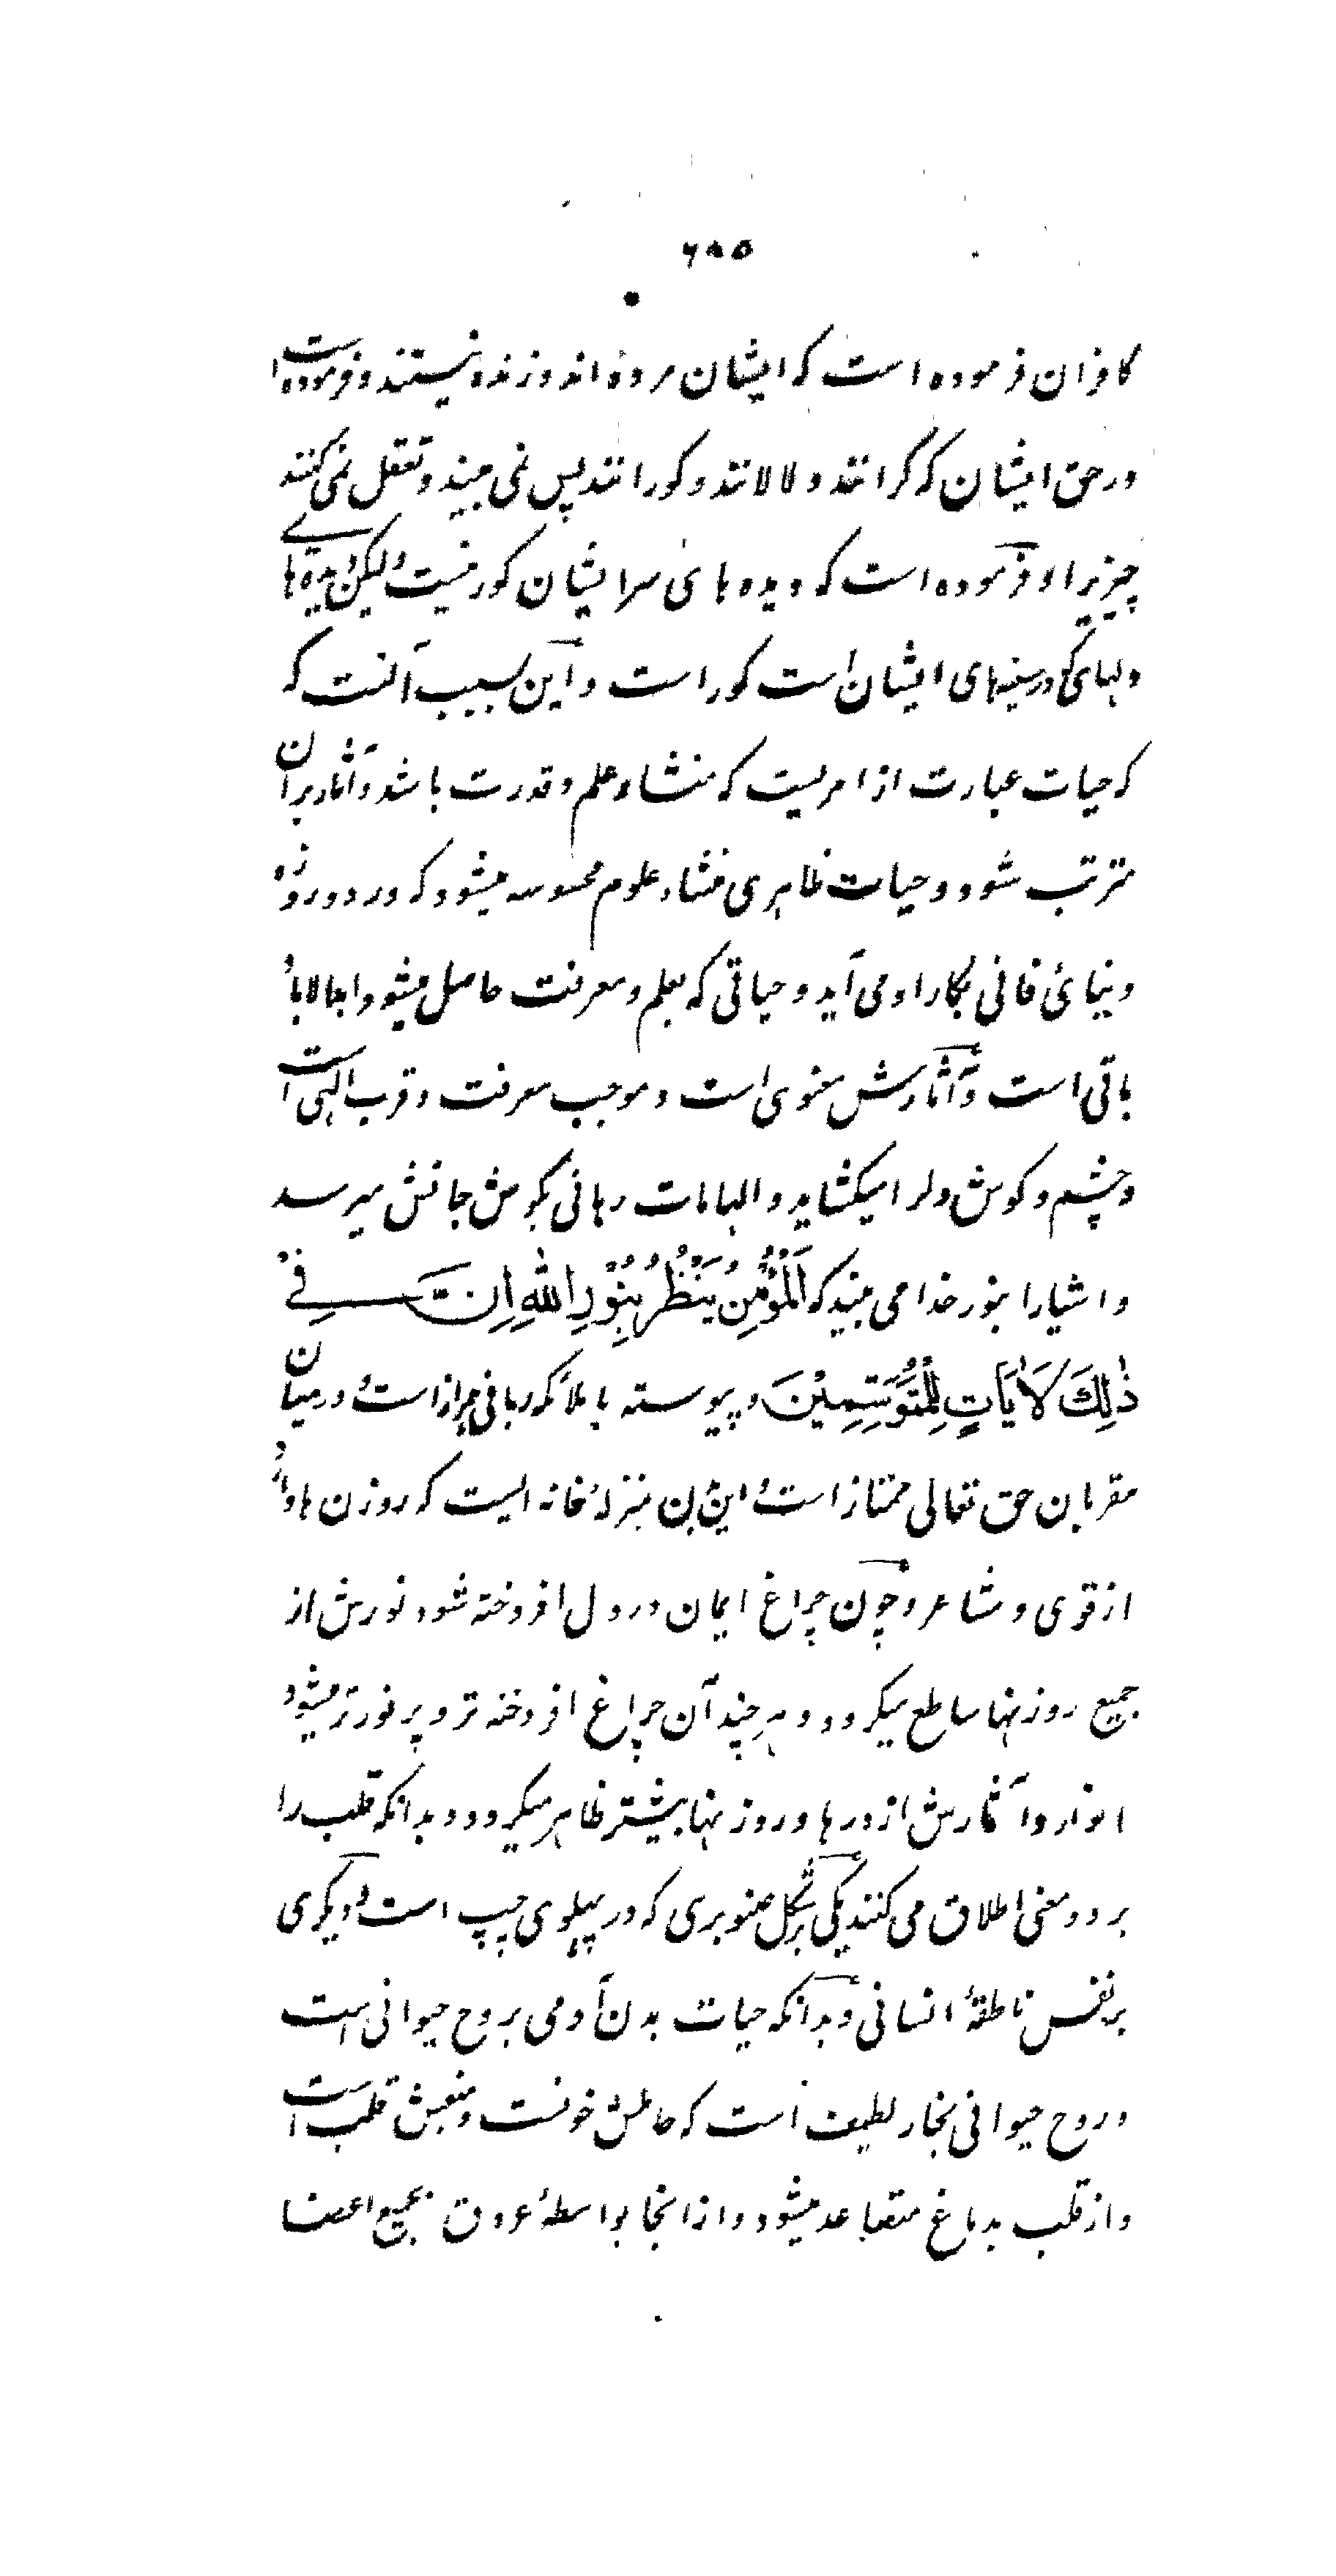 ۶۸۵
کافران فرموده است که ایشان مرده اند و زنده نیستند و فرموده است
در حق ایشان که کرانند و لالانند و کورانند پس نمی بینند و تعقل نمی کنند
چیزیرا و فرموده است که دیده های سر ایشان کور نیست ولیکن دیدهای
دلهای که در سینهای ایشان است کور است و این بسبب آنست که
که حیات عبارت از امریست که منشاء علم و قدرت باشد و آثار بر آن
مترتب شود و حیات ظاهری منشاء علوم محسوسه میشود که در دو روزه
دنیائ فانی بکار او می آید و حیاتی که بعلم و معرفت حاصل میشود ابدالاباد
باقی است و آثارش معنوی است و موجب معرفت و قرب الهی است
و چشم و کوش دلرا میکشاید و الهامات ربانی بکوش جانش میرسد
و اشیارا بنور خدا می بیند که اَلْمُؤْمِنُ یَنْظُرُ بِنُوْرِ اللهِ اِنَّ فِیْ
ذٰلِكَ لَاٰیَاتٍ لِلْمُتَوَسِّمِیْنَ و پیوسته با ملائکه ربانی همراز است و در میان
مقربان حق تعالی ممتاز است و این بدن بمنزلهٔ خانه ایست که روزن ها دارد
از قوی و مشاعر و چون چراغ ایمان در دل افروخته شود نورش از
جمیع روزنها ساطع میکردد و هر چند آن چراغ افروخته تر و پر نورتر میشود
انوار و آثارش از درها و روزنها بیشتر ظاهر میکردد و بدانکه قلب را
بر دو معنی اطلاق می کنند یکی بر شکل صنوبری که در پهلوی چپ است و دیکری
بر نفس ناطقهٔ انسانی و بدانکه حیات بدن آدمی بروح حیوانی است
و روح حیوانی بخار لطیف است که حاملش خونست و منبعش قلب است
و از قلب بدماغ متصاعد میشود و از انجا بواسطهٔ عروق بجمیع اعضا